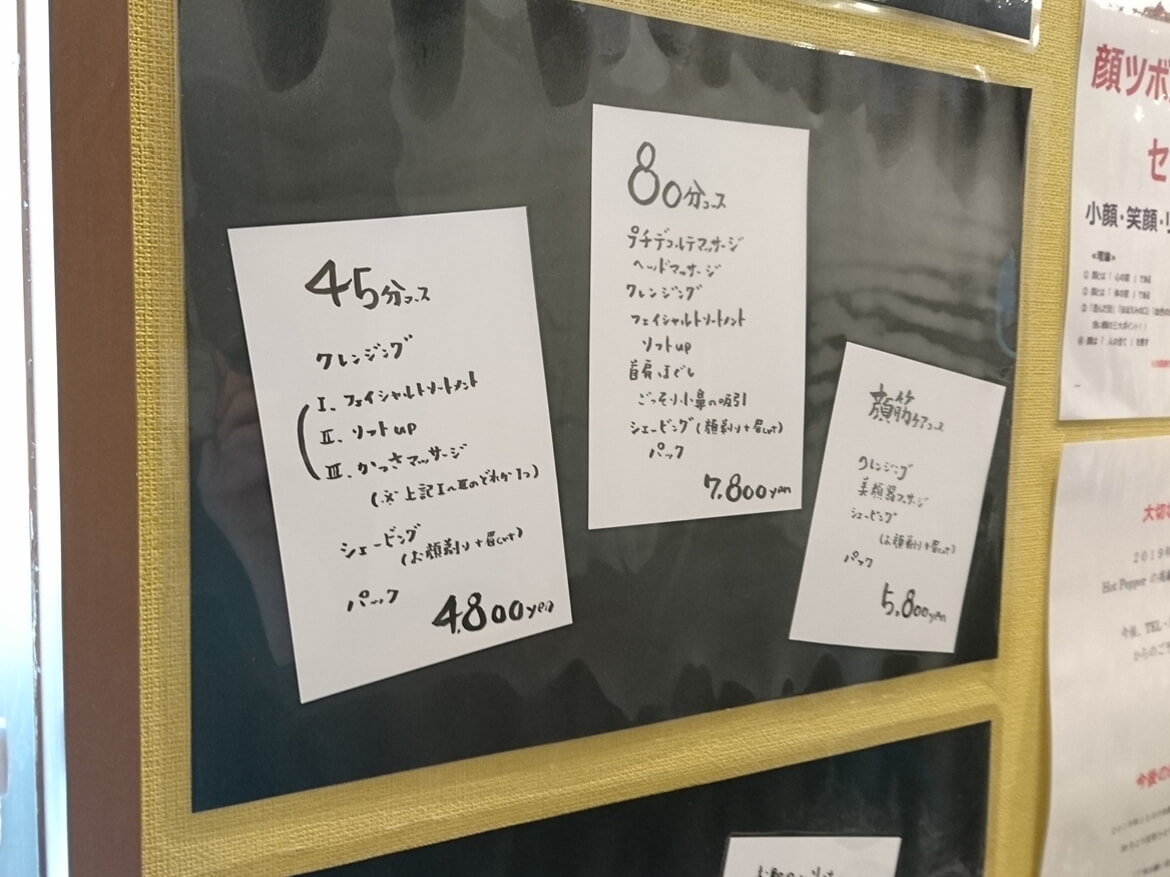 45分コース
クレンジング
Ⅰ. フェイシャルトリートメント
Ⅱ. リフトup
Ⅲ. かっさマッサージ
(※ 上記Ⅰ〜Ⅲのどれか1つ)
シェービング
(お顔剃り+眉カット)
パック
4,800yen
80分コース
プチデコルテマッサージ
ヘッドマッサージ
クレンジング
フェイシャルトリートメント
リフトup
首肩ほぐし
ごっそり小鼻の吸引
シェービング(顔剃り+眉カット)
パック
7,800yen
顔筋ケアコース
クレンジング
美顔器マッサージ
シェービング
(お顔剃り+眉カット)
パック
5,800yen
顔ツボ
セ
小顔・笑顔・リ
≪理論≫
① 顔とは「 心の窓 」である
② 顔とは「 体の窓 」である
④ 顔は「 人の全て 」を表す
大切な
2019年
Hot Pepper の掲載
今後、TEL・
からのご予
今後の